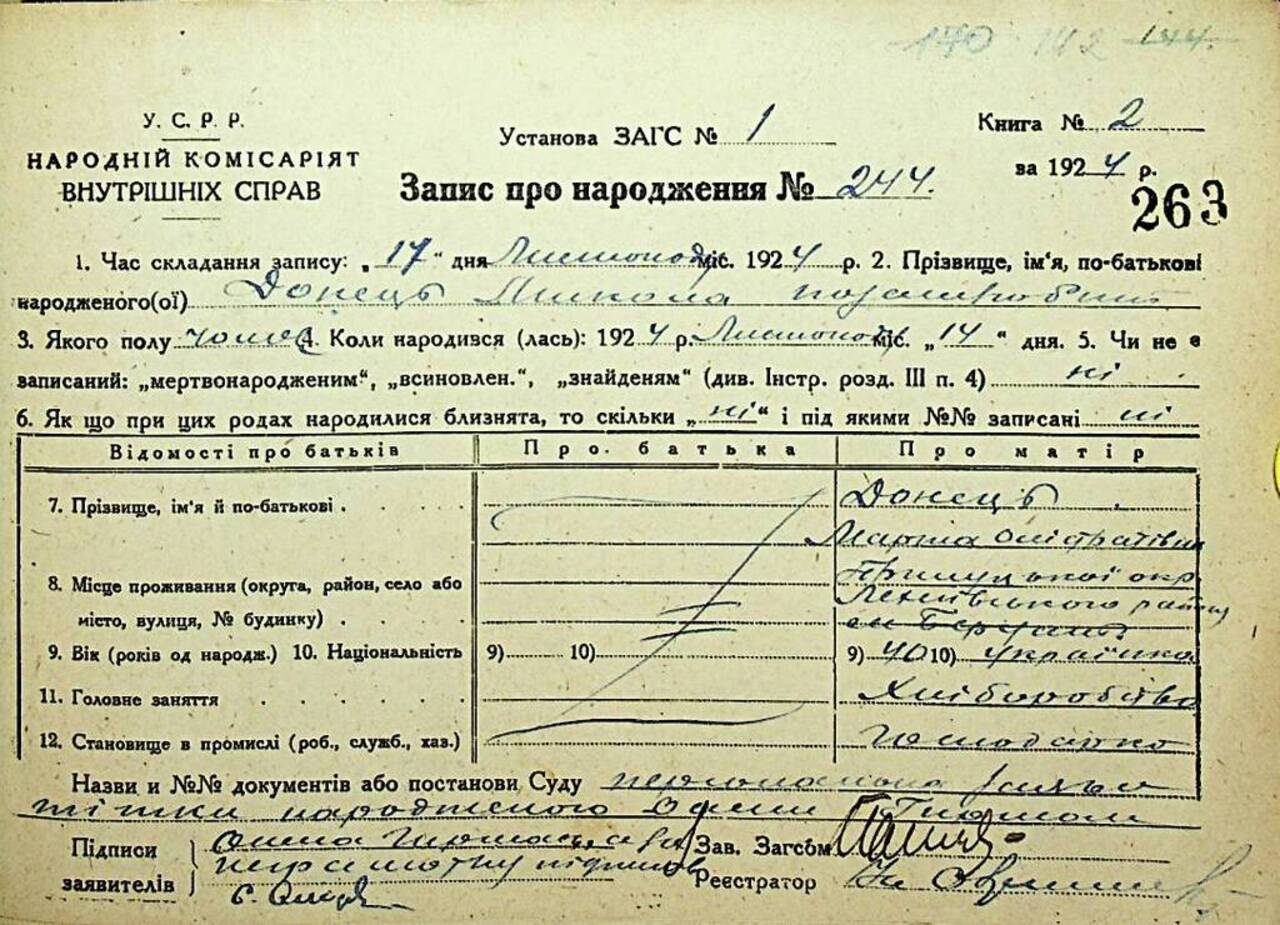 170 142 144.
У. С. Р. Р.
НАРОДНІЙ КОМІСАРІЯТ
ВНУТРІШНІХ СПРАВ
Установа ЗАГС № 1
Книга № 2
за 1924 р.
Запис про народження № 244.
263
1. Час складання запису: „17" дня Листопода міс. 1924 р. 2. Прізвище, ім'я, по-батькові
народженого(ої) Донець Микола позашлюбний
3. Якого полу чолов 4. Коли народився (лась): 1924 р. Листопода міс. „14" дня. 5. Чи не є
записаний: „мертвонародженим", „всиновлен.", „знайденям" (див. Інстр. розд. III п. 4) ні
6. Як що при цих родах народилися близнята, то скільки „ні" і під якими №№ записані ні
Відомості про батьків Про батька Про матір
7. Прізвище, ім'я й по-батькові Донець
Марта
8. Місце проживання (округа, район, село або Прилуцької окр
місто, вулиця, № будинку) району
9. Вік (років од народж.) 10. Національність 9) 10) 9) 40 10) українка
11. Головне заняття Хліборобство
12. Становище в промислі (роб., служб., хаз.) господарка
Назви и №№ документів або постанови Суду персональна заява
тітки народженого
Підписи
заявителів
неграмотну підписав
Зав. Загсом
Реєстратор